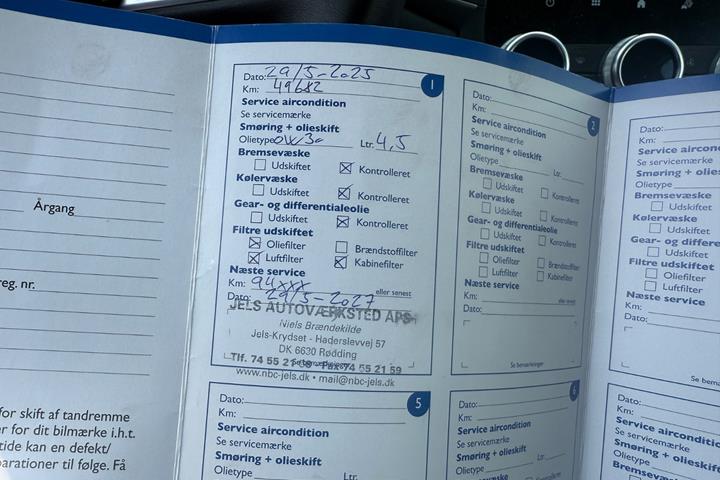 Årgang
reg. nr.
for skift af tandremme
er for dit bilmærke i.h.t.
tide kan en defekt/
parationer til følge. Få
1
Dato: 29/5-2025
Km: 49682
Service aircondition
Se servicemærke
Smøring + olieskift
Olietype 0W30 Ltr. 4,5
Bremsevæske
Udskiftet Kontrolleret
Kølervæske
Udskiftet Kontrolleret
Gear- og differentialeolie
Udskiftet Kontrolleret
Filtre udskiftet
Oliefilter Brændstoffilter
Luftfilter Kabinefilter
Næste service
Km: 94xxx eller senest
Dato: 29/5-2027
JELS AUTOVÆRKSTED APS
Niels Brændekilde
Jels-Krydset - Haderslevvej 57
DK 6630 Rødding
Tlf. 74 55 21 58 - Fax 74 55 21 59
Se bemærkninger
www.nbc-jels.dk • mail@nbc-jels.dk
2
Dato:
Km:
Service aircondition
Se servicemærke
Smøring + olieskift
Olietype Ltr.
Bremsevæske
Udskiftet Kontrolleret
Kølervæske
Udskiftet Kontrolleret
Gear- og differentialeolie
Udskiftet Kontrolleret
Filtre udskiftet
Oliefilter Brændstoffilter
Luftfilter Kabinefilter
Næste service
Km: eller senest
Dato:
Se bemærkninger
Dato:
Km:
Service aircondition
Se servicemærke
Smøring + olies
Olietype
Bremsevæske
Udskiftet
Kølervæske
Udskiftet
Gear- og differe
Udskiftet
Filtre udskiftet
Oliefilter
Luftfilter
Næste service
Km:
Dato:
Se bemæ
5
Dato:
Km:
Service aircondition
Se servicemærke
Smøring + olieskift
Olietype Ltr.
6
Dato:
Km:
Service aircondition
Se servicemærke
Smøring + olieskift
Olietype Ltr.
Dato:
Km:
Service aircondi
Se servicemærke
Smøring + olies
Olietype
Bremsevæske